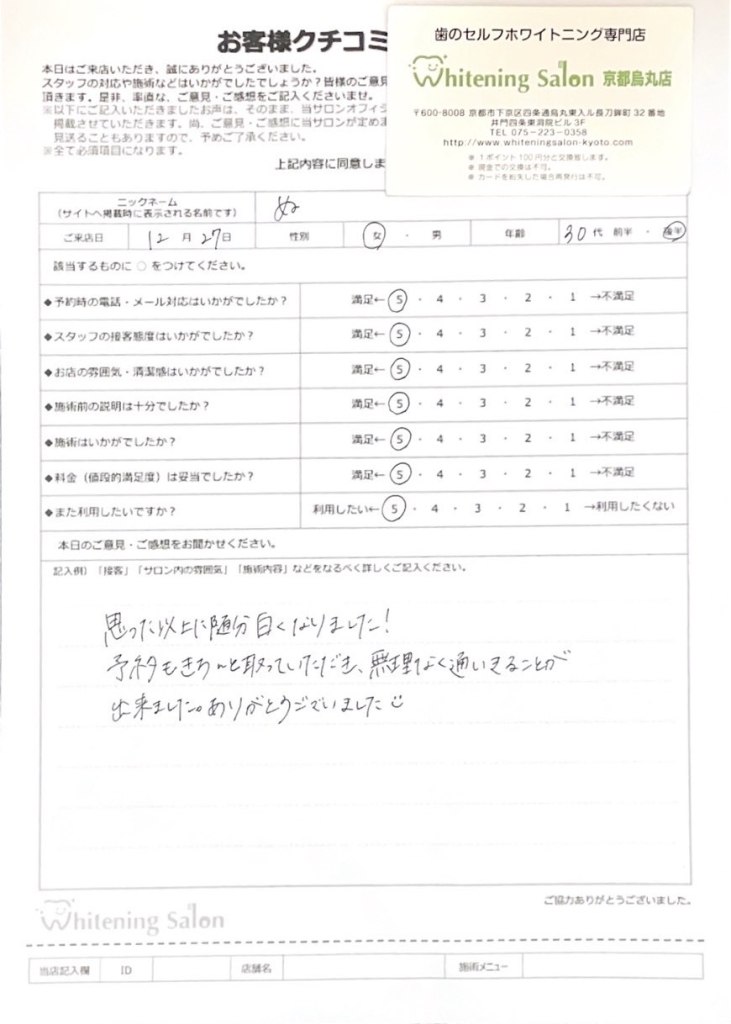 お客様クチコミ
歯のセルフホワイトニング専門店
Whitening Salon 京都烏丸店
〒600-8008 京都市下京区四条通烏丸東入ル長刀鉾町 32 番地
井門四条東洞院ビル 3F
TEL 075-223-0358
http://www.whiteningsalon-kyoto.com
※ 1ポイント100円分と交換致します。
※ 現金での交換は不可。
※ カードを紛失した場合再発行は不可。
本日はご来店いただき、誠にありがとうございました。
スタッフの対応や施術などはいかがでしたでしょうか?皆様のご意見
頂きます。是非、率直な、ご意見・ご感想をご記入くださいませ。
※以下にご記入いただきましたお声は、そのまま、当サロンオフィシ
掲載させていただきます。尚、ご意見・ご感想に当サロンが定めま
見送ることもありますので、予めご了承ください。
※全て必須項目になります。
上記内容に同意しま
ニックネーム
(サイトへ掲載時に表示される名前です) ぬ
ご来店日 12 月 27 日 性別 女 ・ 男 年齢 30 代 前半 ・ 後半
該当するものに ○ をつけてください。
◆予約時の電話・メール対応はいかがでしたか? 満足← 5 ・ 4 ・ 3 ・ 2 ・ 1 →不満足
◆スタッフの接客態度はいかがでしたか? 満足← 5 ・ 4 ・ 3 ・ 2 ・ 1 →不満足
◆お店の雰囲気・清潔感はいかがでしたか? 満足← 5 ・ 4 ・ 3 ・ 2 ・ 1 →不満足
◆施術前の説明は十分でしたか? 満足← 5 ・ 4 ・ 3 ・ 2 ・ 1 →不満足
◆施術はいかがでしたか? 満足← 5 ・ 4 ・ 3 ・ 2 ・ 1 →不満足
◆料金(値段的満足度)は妥当でしたか? 満足← 5 ・ 4 ・ 3 ・ 2 ・ 1 →不満足
◆また利用したいですか? 利用したい← 5 ・ 4 ・ 3 ・ 2 ・ 1 →利用したくない
本日のご意見・ご感想をお聞かせください。
記入例)「接客」「サロン内の雰囲気」「施術内容」などをなるべく詳しくご記入ください。
思った以上に随分白くなりました!
予約もきちんと取っていただき、無理なく通いきることが
出来ました。ありがとうございました
ご協力ありがとうございました。
Whitening Salon
当店記入欄 ID 店舗名 施術メニュー